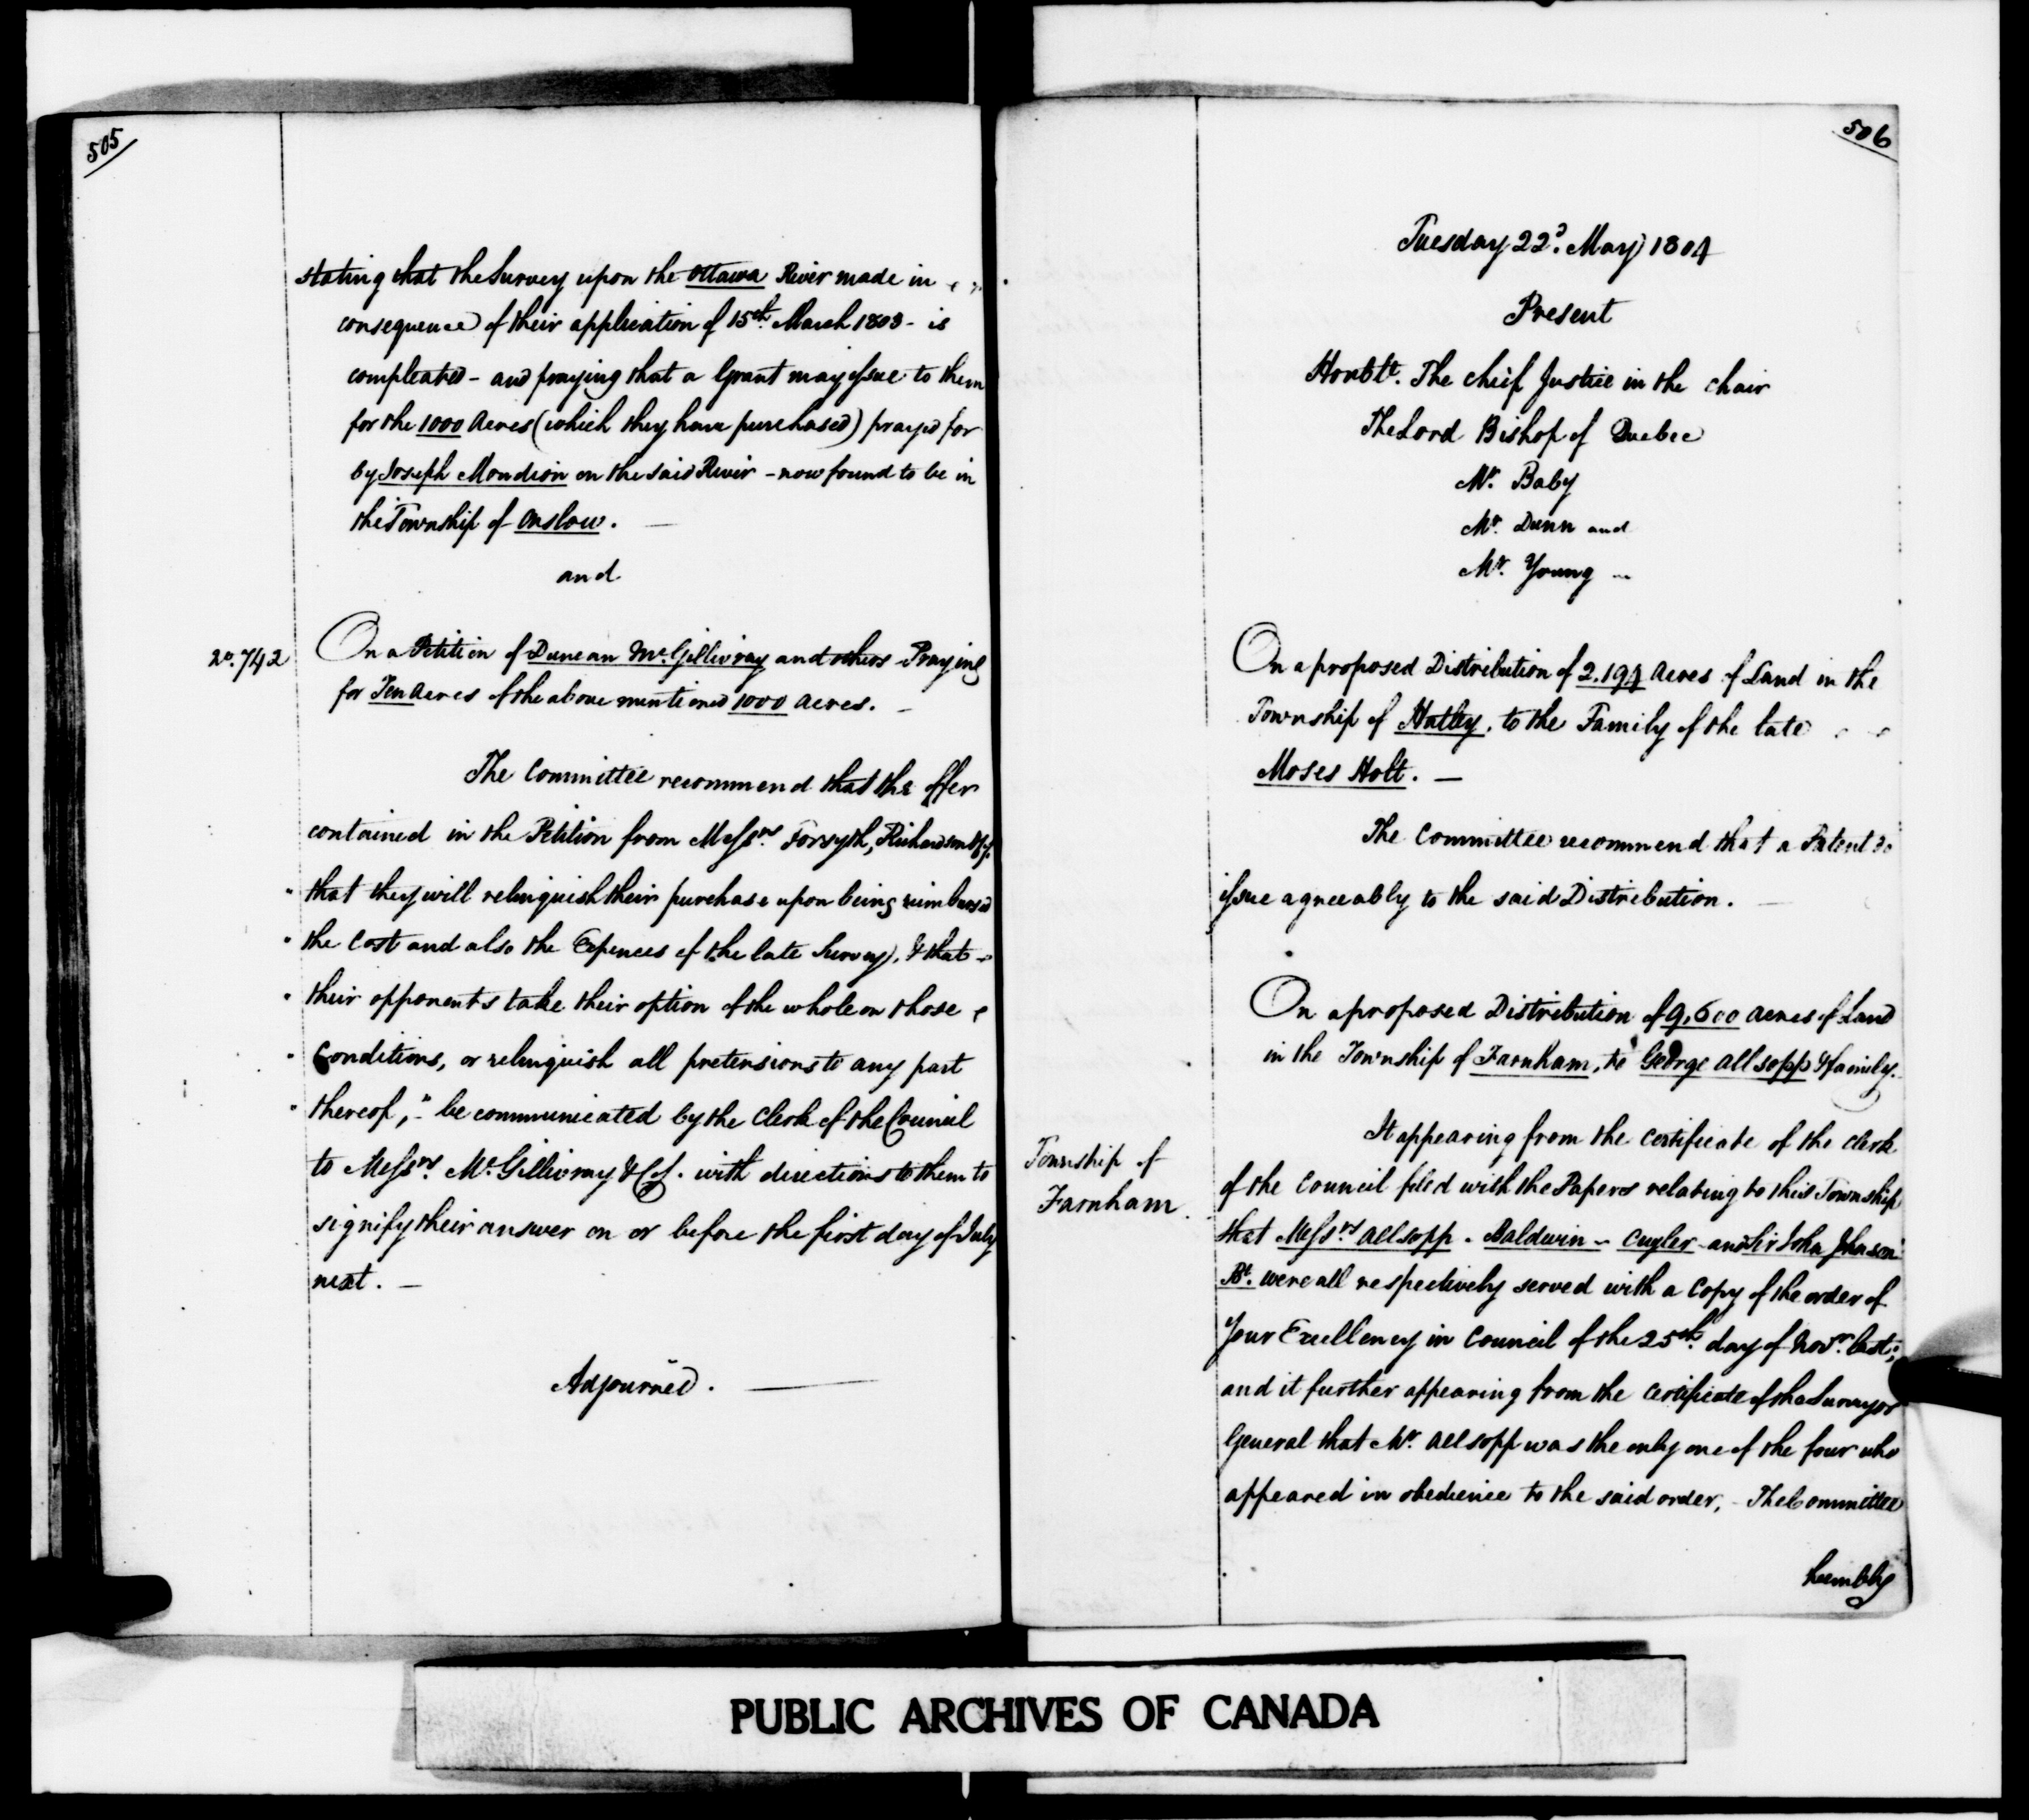 505
stating that the Survey upon the Ottawa River made in
consequence of their application of 15th. March 1803 - is
compleated - and praying that a Grant may issue to them
for the 1000 Acres (which they have purchased) prayed for
by Joseph Mondion on the said River - now found to be in
the Township of Onslow. —
and
No. 742
On a Petition of Duncan McGillivray and others Praying
for Ten Acres of the above mentioned 1000 Acres. -
The Committee recommend that the offer
contained in the Petition from Messrs. Forsyth, Richardson & Co.
" that they will relinquish their purchase upon being reimbursed
" the Cost and also the Expences of the late Survey, & that
" their opponents take their option of the whole on those
" Conditions, or relinquish all pretensions to any part
" thereof," be communicated by the Clerk of the Council
to Messrs. McGillivray & Co. with directions to them to
signify their answer on or before the first day of July
next. —
Adjourned. —
506
Tuesday 22d. May 1804
Present
Honble. The Chief Justice in the chair
The Lord Bishop of Quebec
Mr. Baby
Mr. Dunn and
Mr. Young
On a proposed Distribution of 2,194 Acres of Land in the
Township of Hatley, to the Family of the late
Moses Holt. —
The Committee recommend that a Patent do
issue agreeably to the said Distribution. —
On a proposed Distribution of 9,600 Acres of Land
in the Township of Farnham, to George Allsopp & family.
Township of
Farnham
It appearing from the Certificate of the Clerk
of the Council filed with the Papers relating to this Township
that Messrs Allsopp - Baldwin - Cuyler - and Sir John Johnson
Bt. were all respectively served with a Copy of the order of
Your Excellency in Council of the 25th. day of Novr. last;
and it further appearing from the Certificate of the Surveyor
General that Mr. Allsopp was the only one of the four who
appeared in obedience to the said order, - The Committee
humbly
PUBLIC ARCHIVES OF CANADA